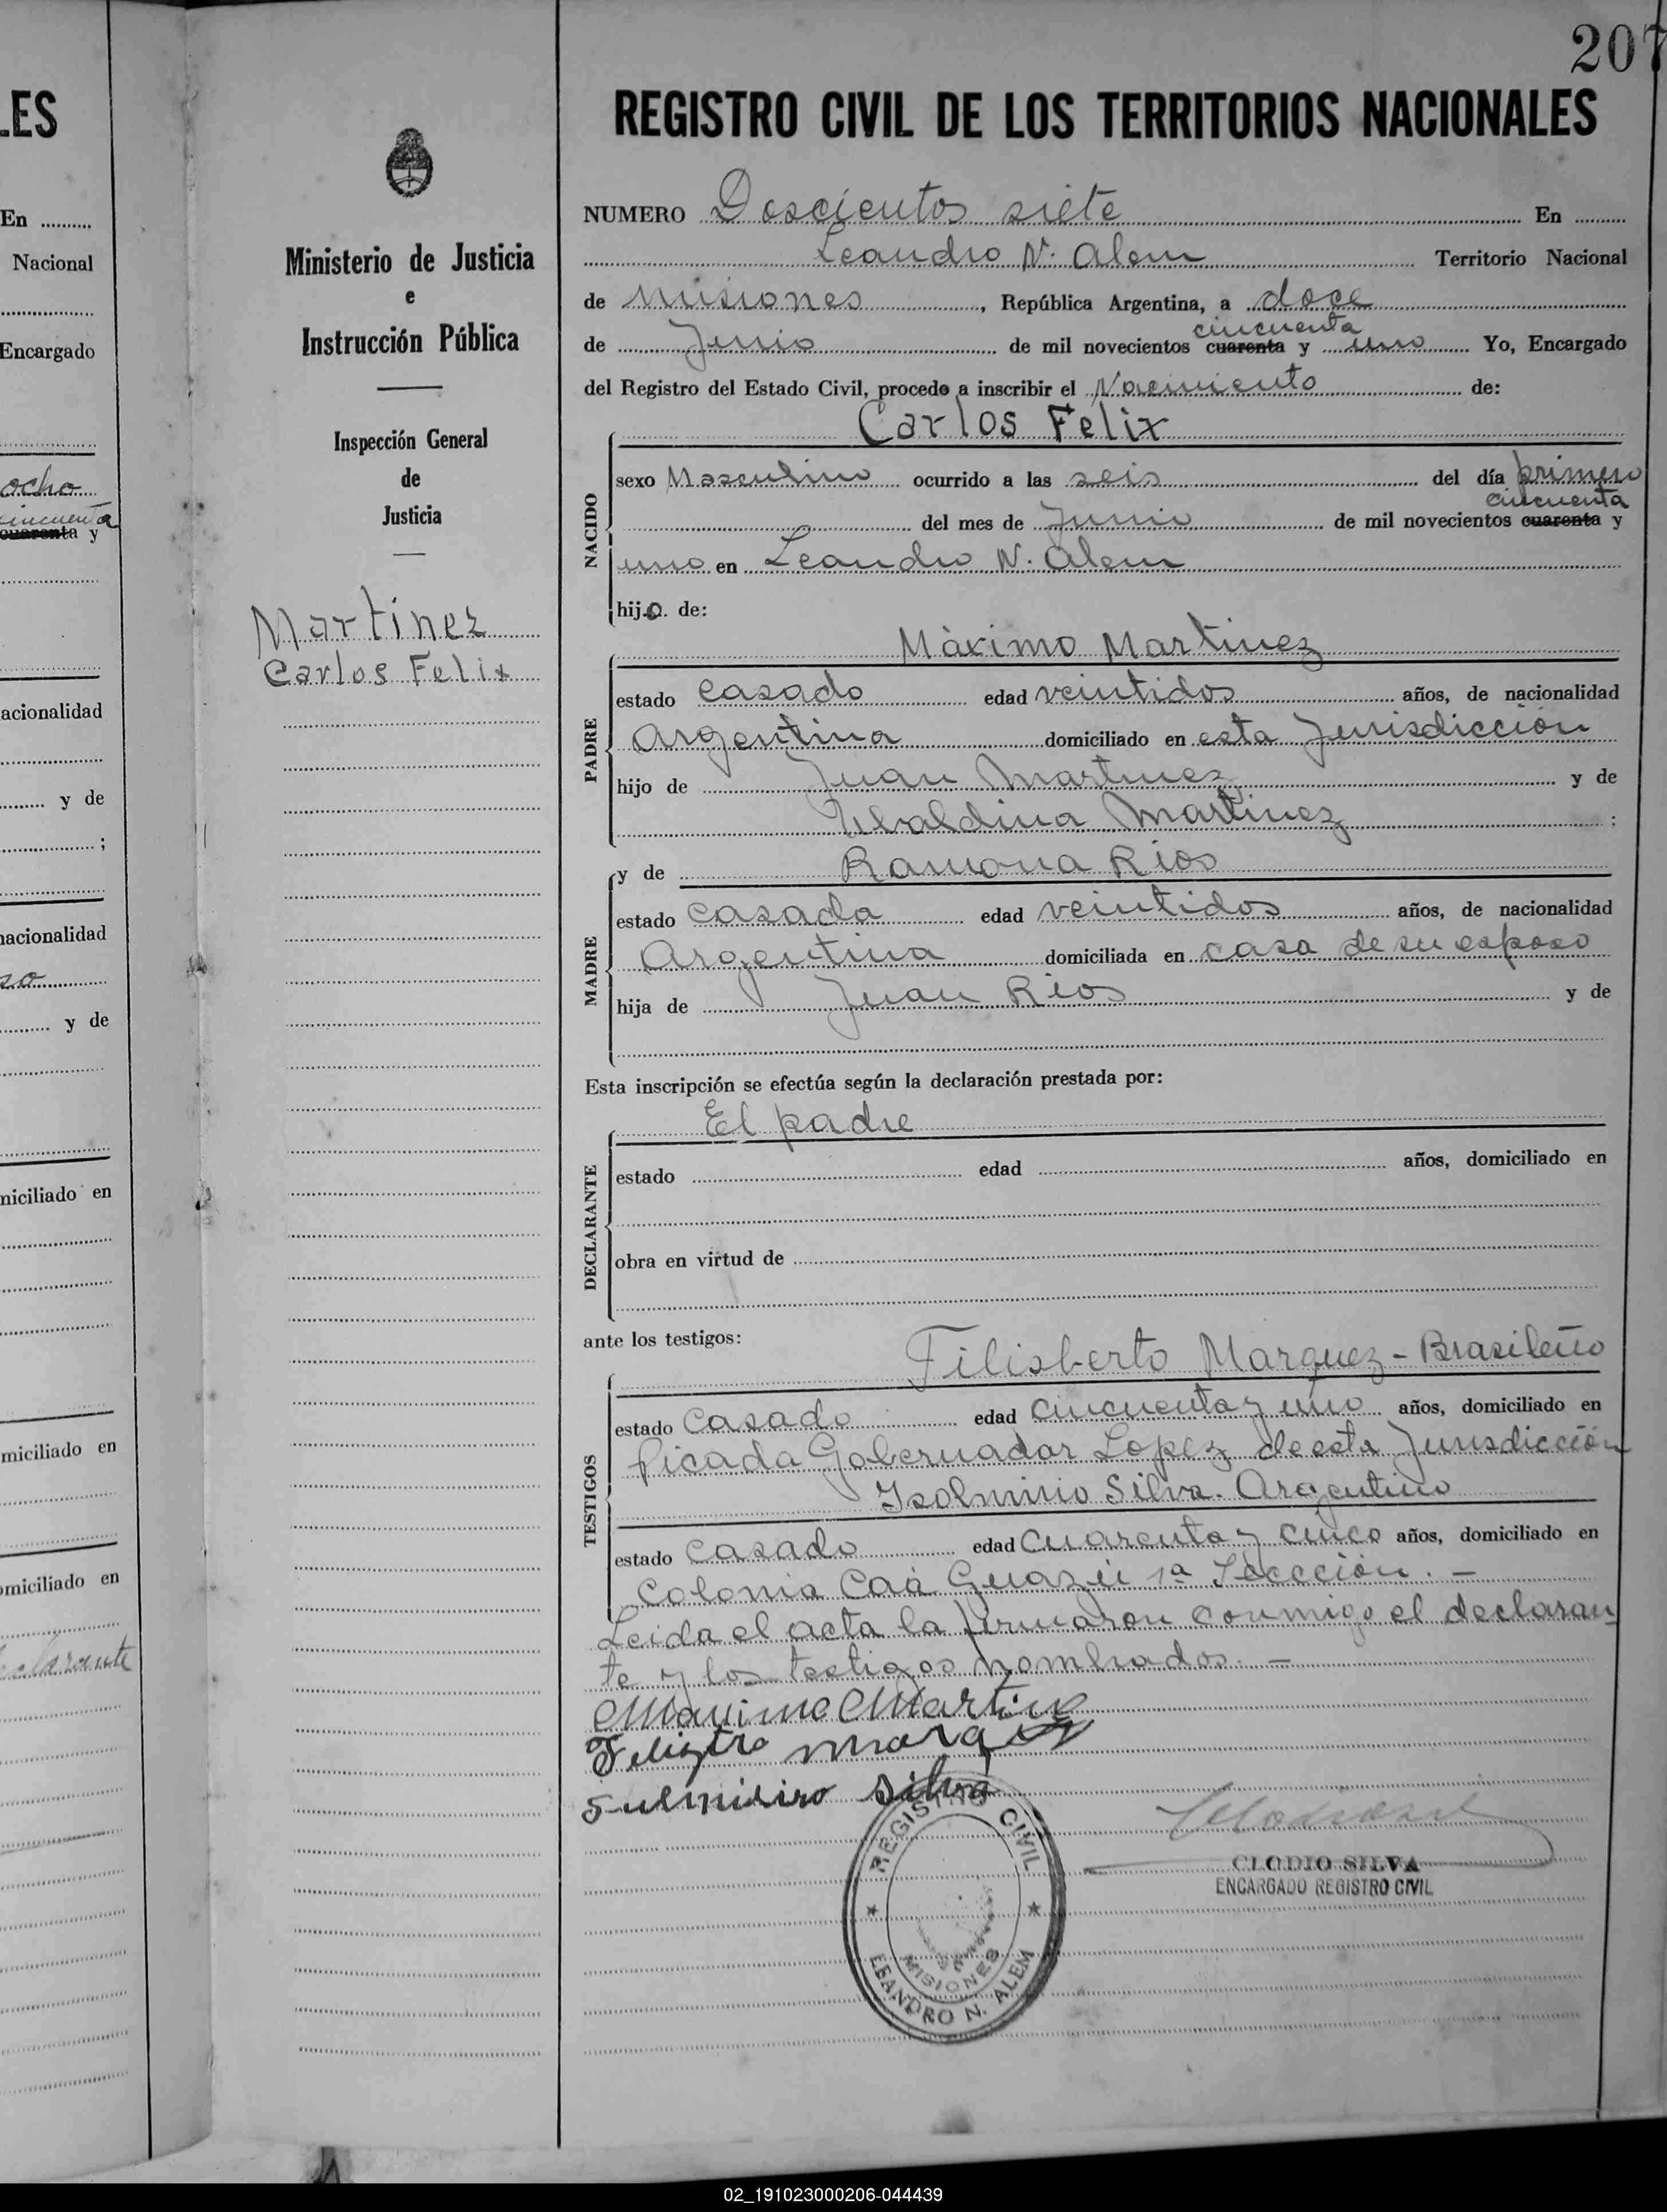 207
LES
En
Nacional
Encargado
ocho
cincuenta
cuarenta y
acionalidad
y de
;
nacionalidad
so
y de
miciliado en
miciliado en
omiciliado en
clarante
Ministerio de Justicia
e
Instrucción Pública
Inspección General
de
Justicia
Martinez
Carlos Felix
REGISTRO CIVIL DE LOS TERRITORIOS NACIONALES
NUMERO Doscientos siete En
Leandro N. Alem Territorio Nacional
de Misiones, República Argentina, a doce
cincuenta
de Junio de mil novecientos cuarenta y uno Yo, Encargado
del Registro del Estado Civil, procedo a inscribir el Nacimiento de:
Carlos Felix
NACIDO
sexo Masculino ocurrido a las seis del día primero
cincuenta
del mes de Junio de mil novecientos cuarenta y
uno en Leandro N. Alem
hijo de:
Máximo Martinez
PADRE
estado casado edad veintidos años, de nacionalidad
Argentina domiciliado en esta Jurisdicción
hijo de Juan Martinez y de
Ubaldina Martinez ;
MADRE
y de Ramona Rios
estado casada edad veintidos años, de nacionalidad
Argentina domiciliada en casa de su esposo
hija de Juan Rios y de
Esta inscripción se efectúa según la declaración prestada por:
El padre
DECLARANTE
estado edad años, domiciliado en
obra en virtud de
ante los testigos:
Filisberto Marquez - Brasileño
TESTIGOS
estado Casado edad cincuenta y uno años, domiciliado en
Picada Gobernador Lopez de esta Jurisdicción
Silva. Argentino
estado Casado edad cuarenta y cinco años, domiciliado en
Colonia Caá Guazú 1ª Seccción. -
Leida el acta la firmaron conmigo el declaran
te y los testigos nombrados. -
Maximo Martinez
Marquez
Silva
REGISTRO CIVIL
MISIONES
LEANDRO N. ALEM
CLODIO SILVA
ENCARGADO REGISTRO CIVIL
02_191023000206-044439